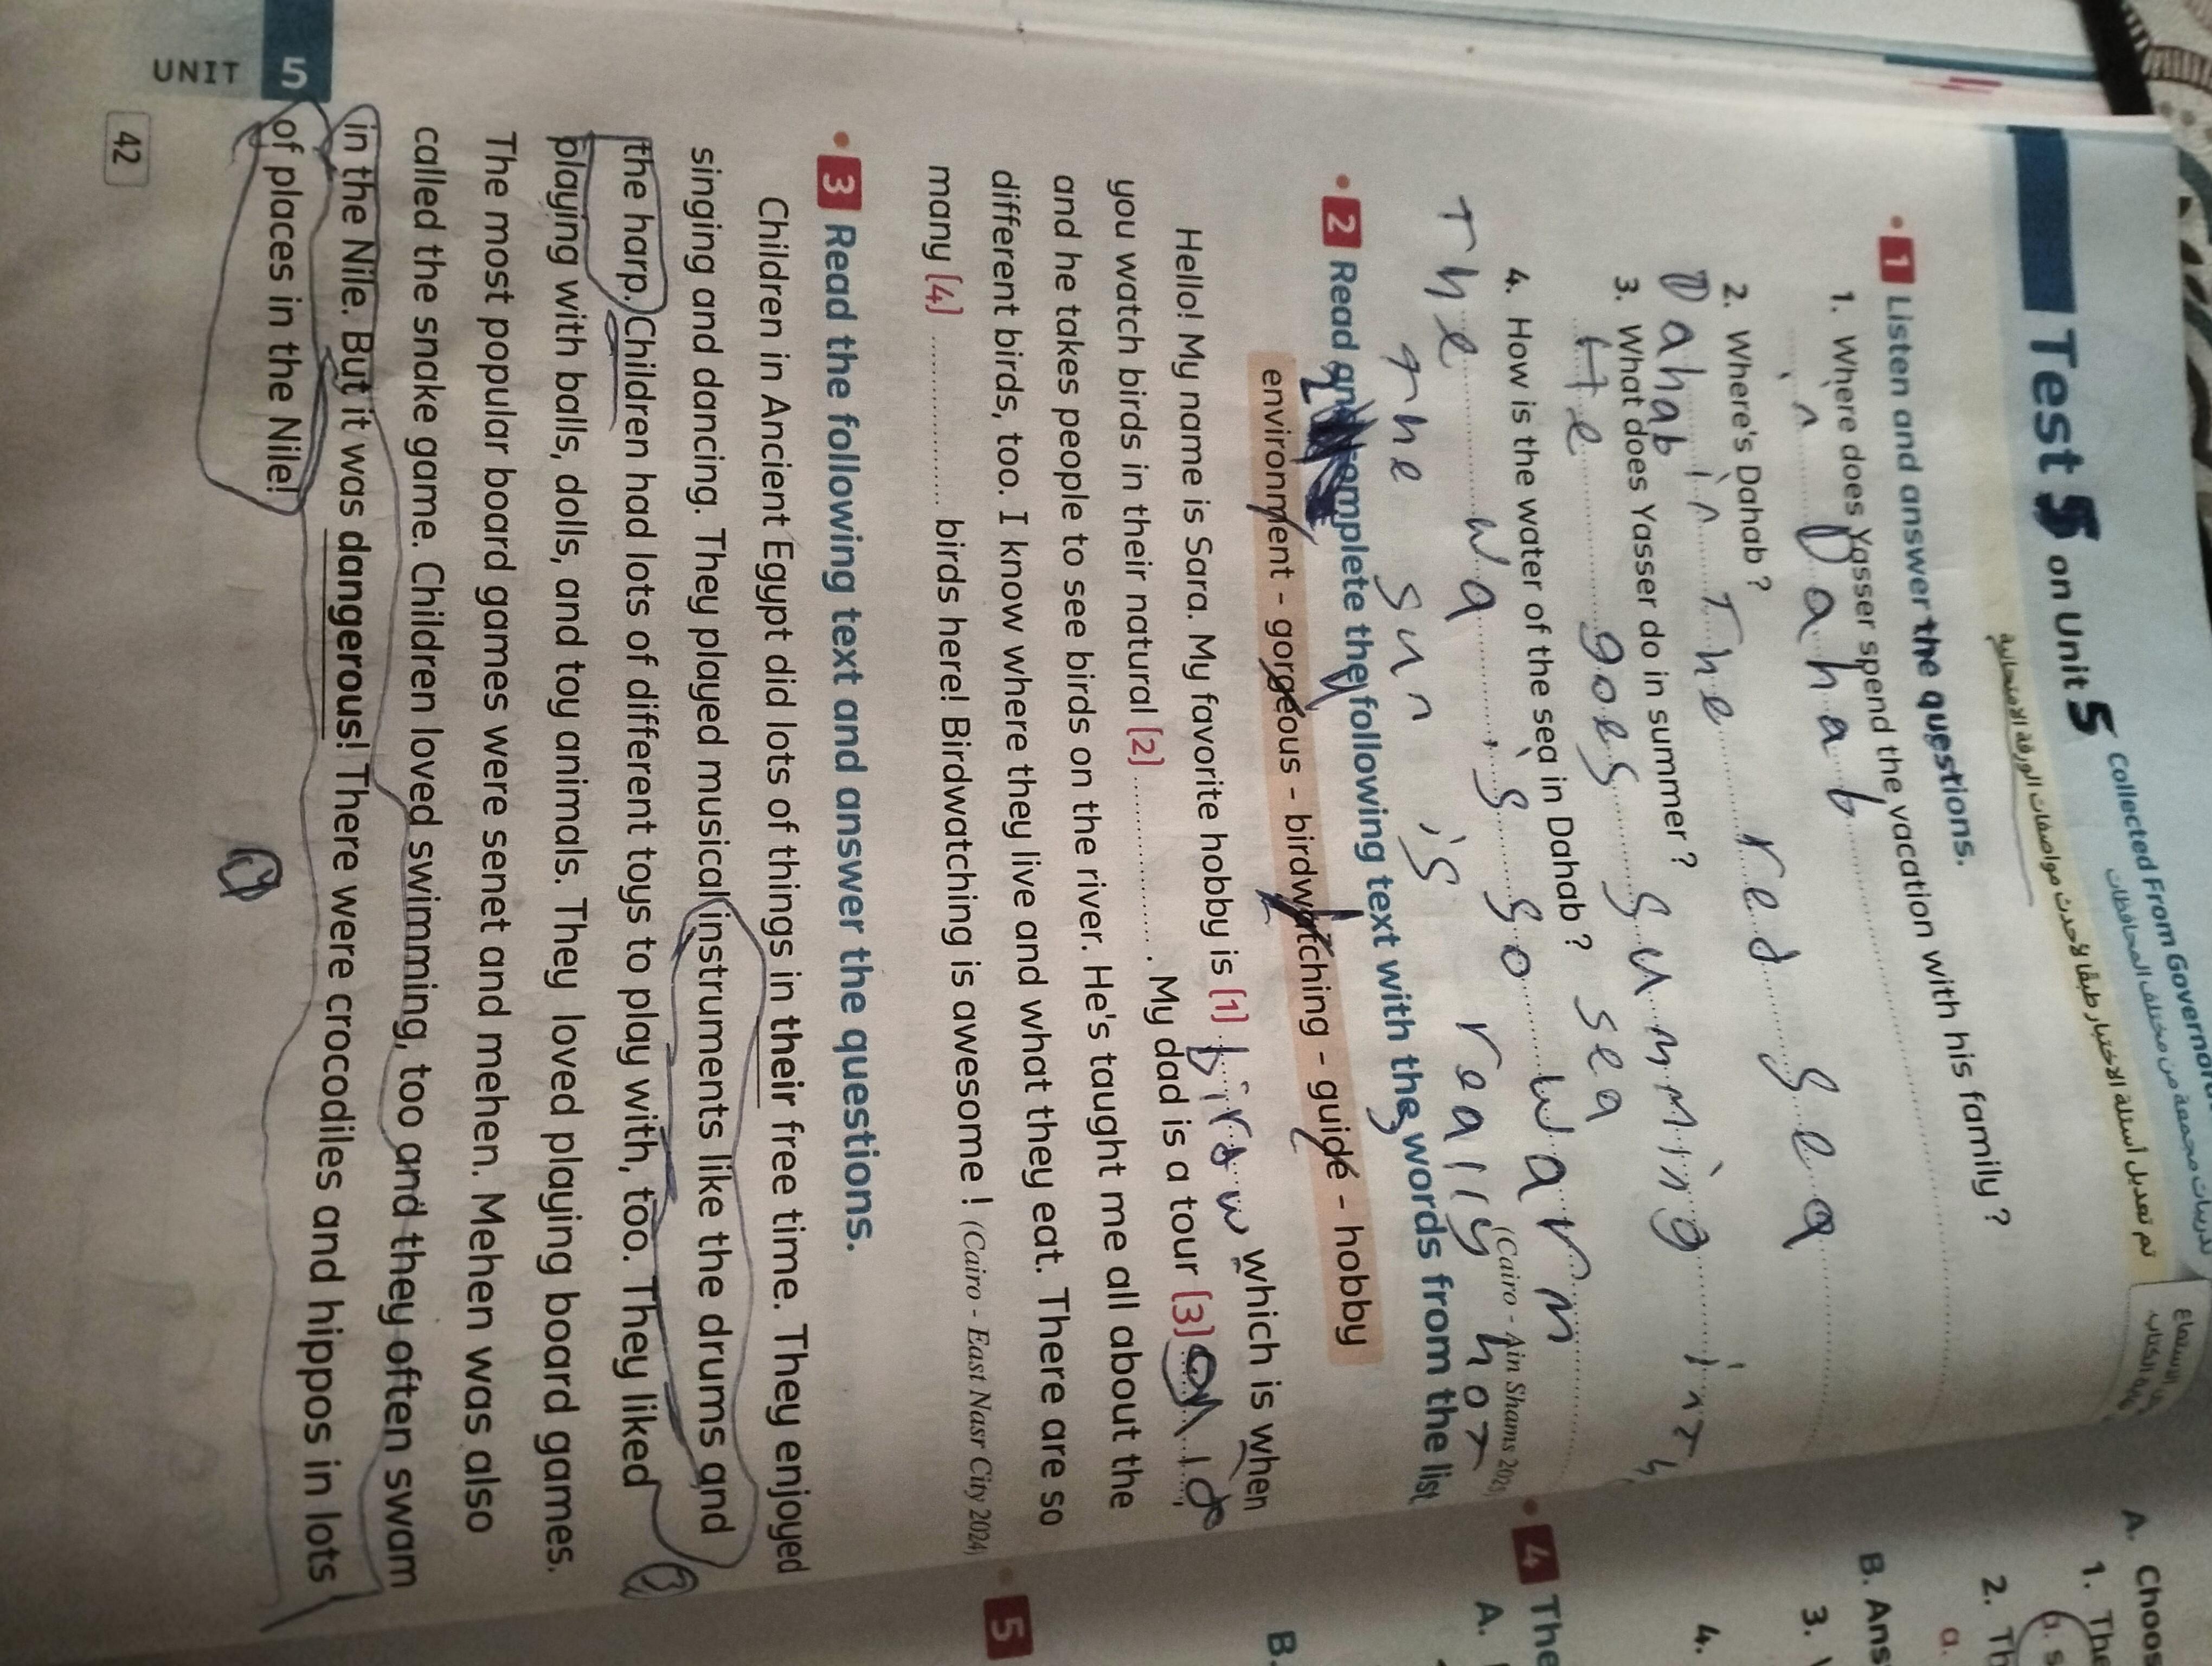 Collected From Governorat
تدريبات مجمعة من مختلف المحافظات
Test 5 on Unit 5
تم تعديل أسئلة الاختبار طبقًا لأحدث مواصفات الورقة الامتحانية
1 Listen and answer the questions.
1. Where does Yasser spend the vacation with his family?
in Dahab
2. Where's Dahab?
Dahab in The red sea
3. What does Yasser do in summer?
He goes summing in
sea
4. How is the water of the sea in Dahab?
(Cairo - Ain Shams 202
The wa is so warm
The sun is really hot
2 Read and complete the following text with the words from the list
environment - gorgeous - birdwatching - guide - hobby
Hello! My name is Sara. My favorite hobby is [1] which is when
you watch birds in their natural [2] .................. . My dad is a tour [3]
and he takes people to see birds on the river. He's taught me all about the
different birds, too. I know where they live and what they eat. There are so
many [4] .................. birds here! Birdwatching is awesome! (Cairo - East Nasr City 2024)
3 Read the following text and answer the questions.
Children in Ancient Egypt did lots of things in their free time. They enjoyed
singing and dancing. They played musical instruments like the drums and
the harp. Children had lots of different toys to play with, too. They liked
playing with balls, dolls, and toy animals. They loved playing board games.
The most popular board games were senet and mehen. Mehen was also
called the snake game. Children loved swimming, too and they often swam
in the Nile. But it was dangerous! There were crocodiles and hippos in lots
of places in the Nile!
UNIT 5
42
A. Choos
1. The
a. s
2. Th
a.
B. Ans
3.
4.
4 The
A.
B.
5